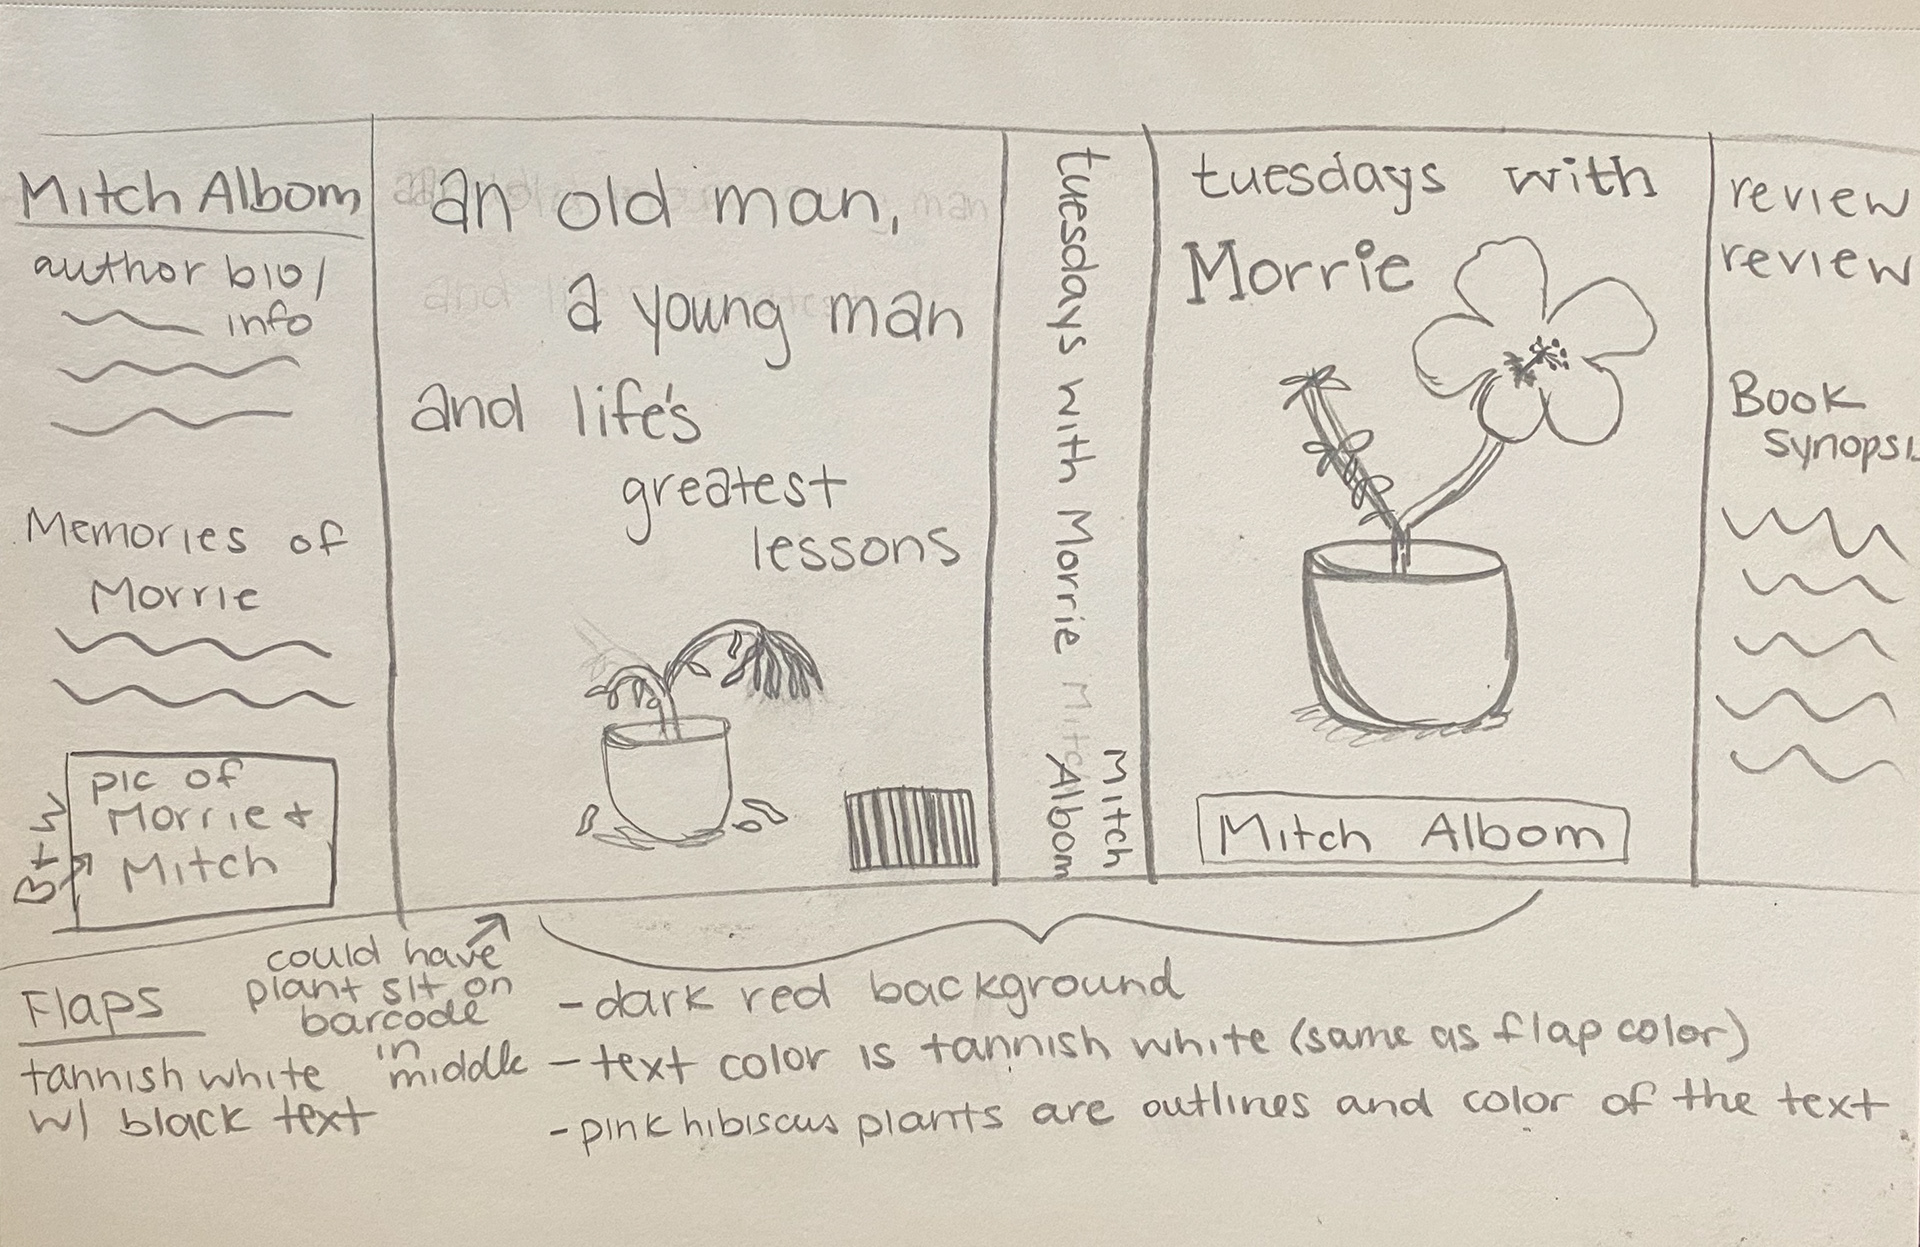 Mitch Albom
author bio/
info
Memories of
Morrie
B+W
pic of
Morrie +
Mitch
an old man,
a young man
and life's
greatest
lessons
tuesdays with Morrie
Mitch
Albom
tuesdays with
Morrie
Mitch Albom
review
review
Book
Synopsi
could have
plant sit on
barcode
in
middle
Flaps
tannish white
w/ black text
-dark red background
-text color is tannish white (same as flap color)
-pink hibiscus plants are outlines and color of the text